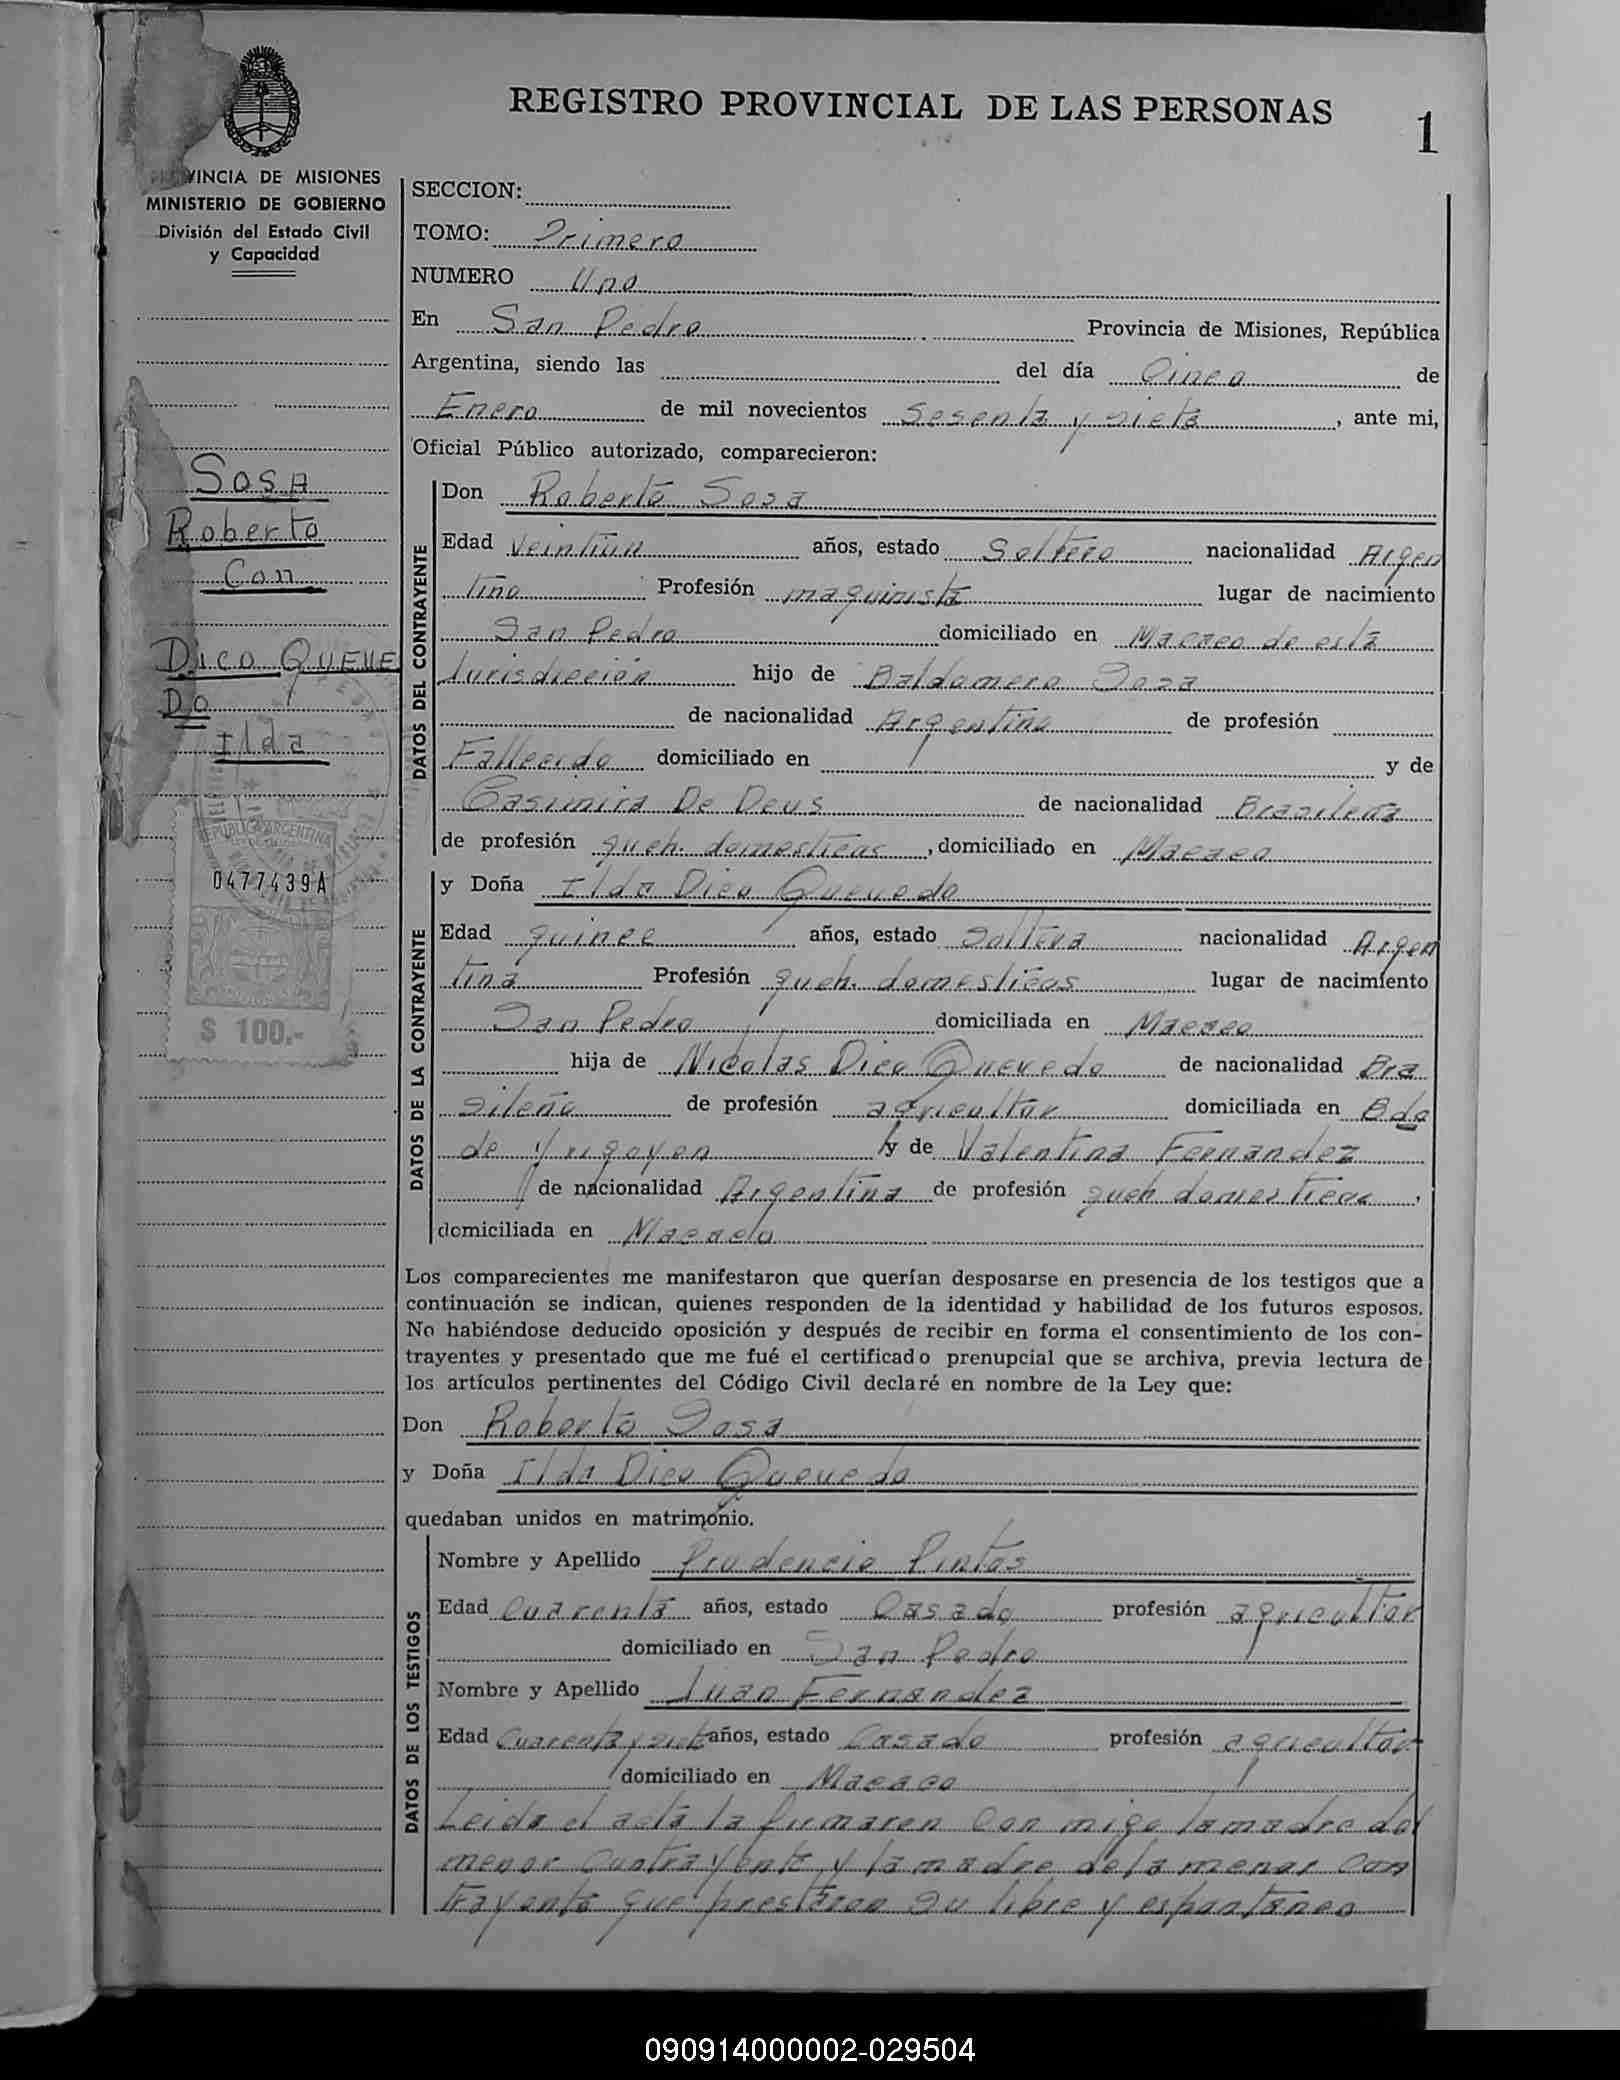 REGISTRO PROVINCIAL DE LAS PERSONAS
1
PROVINCIA DE MISIONES
MINISTERIO DE GOBIERNO
División del Estado Civil
y Capacidad
SOSA
Roberto
Con
DICO QUEVE
DO
Ilda
REPUBLICA ARGENTINA
0477439A
$ 100.-
SECCION:
TOMO: Primero
NUMERO Uno
En San Pedro Provincia de Misiones, República
Argentina, siendo las del día Cinco de
Enero de mil novecientos Sesenta y siete, ante mi,
Oficial Público autorizado, comparecieron:
DATOS DEL CONTRAYENTE
Don Roberto Sosa
Edad Veintiun años, estado Soltero nacionalidad Argen
tino Profesión maquinista lugar de nacimiento
San Pedro domiciliado en Macaco de esta
Jurisdicción hijo de Baldomero Sosa
de nacionalidad Argentina de profesión
Fallecido domiciliado en y de
Casimira De Deus de nacionalidad Brazileña
de profesión queh. domesticos, domiciliado en Macaco
DATOS DE LA CONTRAYENTE
y Doña Ilda Dico Quevedo
Edad quince años, estado Soltera nacionalidad Argen
tina Profesión queh. domesticos lugar de nacimiento
San Pedro domiciliada en Macaco
hija de Nicolas Dico Quevedo de nacionalidad Bra
sileño de profesión agricultor domiciliada en Bdo
de Yrigoyen y de Valentina Fernandez
de nacionalidad Argentina de profesión queh domesticos,
domiciliada en Macaco
Los comparecientes me manifestaron que querían desposarse en presencia de los testigos que a
continuación se indican, quienes responden de la identidad y habilidad de los futuros esposos.
No habiéndose deducido oposición y después de recibir en forma el consentimiento de los con-
trayentes y presentado que me fué el certificado prenupcial que se archiva, previa lectura de
los artículos pertinentes del Código Civil declaré en nombre de la Ley que:
Don Roberto Sosa
y Doña Ilda Dico Quevedo
quedaban unidos en matrimonio.
DATOS DE LOS TESTIGOS
Nombre y Apellido Prudencio Pintos
Edad Cuarenta años, estado Casado profesión agricultor
domiciliado en San Pedro
Nombre y Apellido Juan Fernandez
Edad Cuarenta y siete años, estado Casado profesión agricultor
domiciliado en Macaco
Leida el acta la firmaron con migo la madre del
menor Contrayente y la madre de la menor con
trayente que prestaron su libre y espontaneo
090914000002-029504